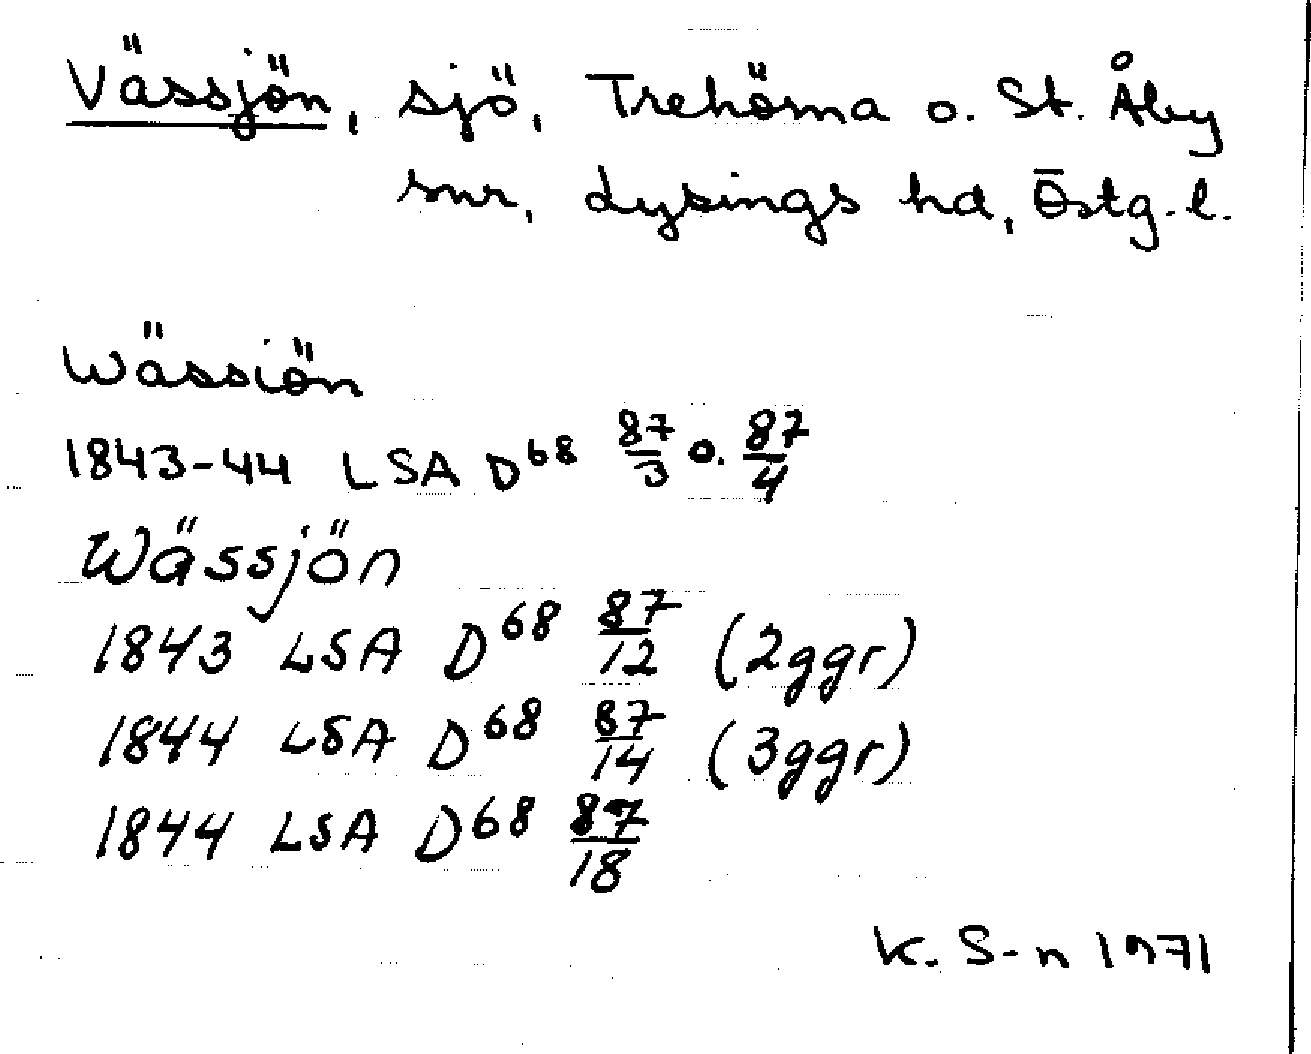 Vässjön, sjö, Trehörna o. St. Åby
snr, Lysings hd, Östg. l.
Wässiön
1843-44 LSA D68 87/3 o. 87/4
Wässjön
1843 LSA D68 87/12 (2ggr)
1844 LSA D68 87/14 (3ggr)
1844 LSA D68 87/18
K. S-n 1971